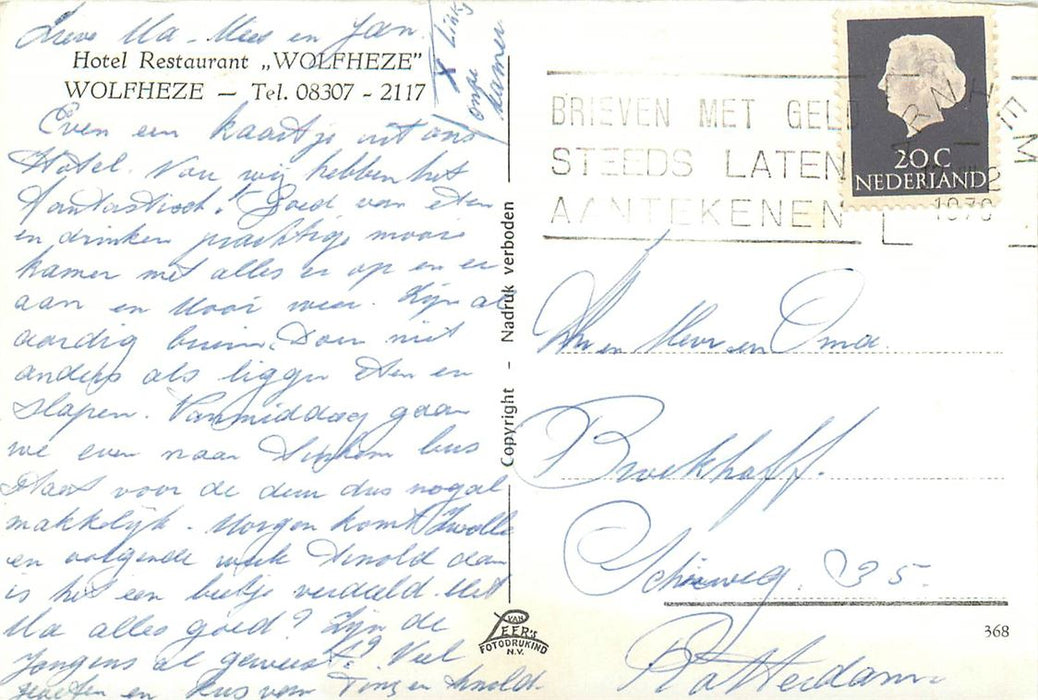 Lieve Ma - Mees en Jan.
X links
onze
kamer
Hotel Restaurant „WOLFHEZE”
WOLFHEZE — Tel. 08307 - 2117
Even een kaartje uit ons
Hotel. Nou wij hebben het
fantastisch! Goed van eten
en drinken prachtige mooie
kamer met alles er op en er
aan en mooi weer. Zijn al
aardig bruin. Doen niet
anders als liggen eten en
slapen. Vanmiddag gaan
we even naar Arnhem bus
staat voor de deur dus nogal
makkelijk. Morgen komt Zwolle
en volgende week Arnold dan
is het een beetje verdeeld. Met
Ma alles goed? Zijn de
jongens al geweest? Veel
groeten en kus van Tony en Arnold.
Copyright - Nadruk verboden
VAN
LEER's
FOTODRUKIND
N.V.
BRIEVEN MET GELD
STEEDS LATEN
AANTEKENEN
ARNHEM
1970
20 C
NEDERLAND
en Mevr en Oma.
Broekhoff.
Schieweg. 35.
Rotterdam.
368